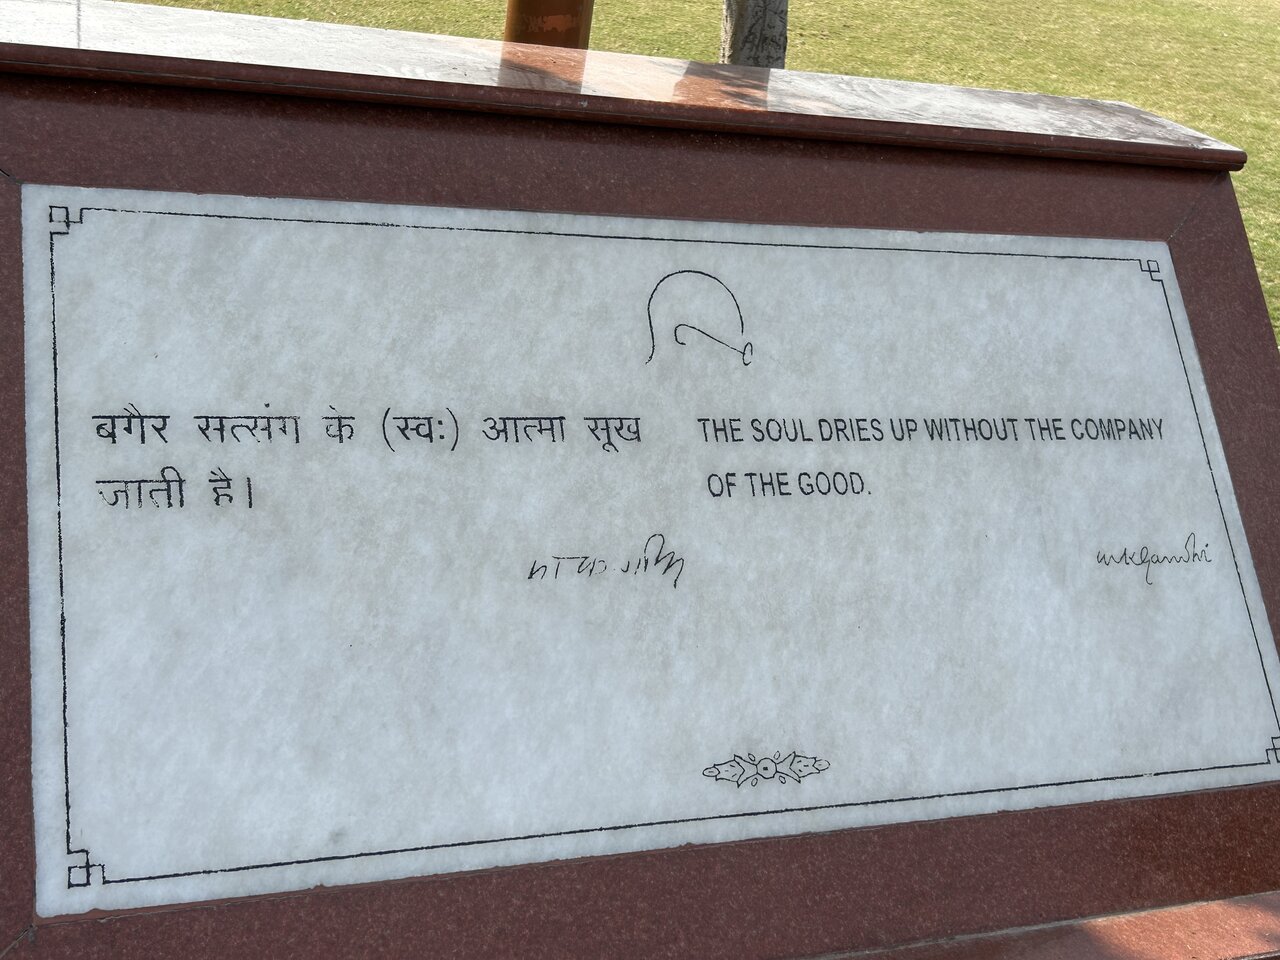 बगैर सत्संग के (स्वः) आत्मा सूख
जाती है।
THE SOUL DRIES UP WITHOUT THE COMPANY
OF THE GOOD.
mkgandhi